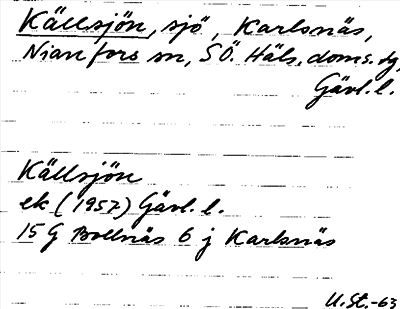 Källsjön, sjö, Karlsnäs,
Nianfors sn, SÖ. Häls. doms. dg,
Gävl. l.
Källsjön
ek (1957) Gävl. l.
15 G Bollnäs 6 j Karlsnäs
U.St.-63